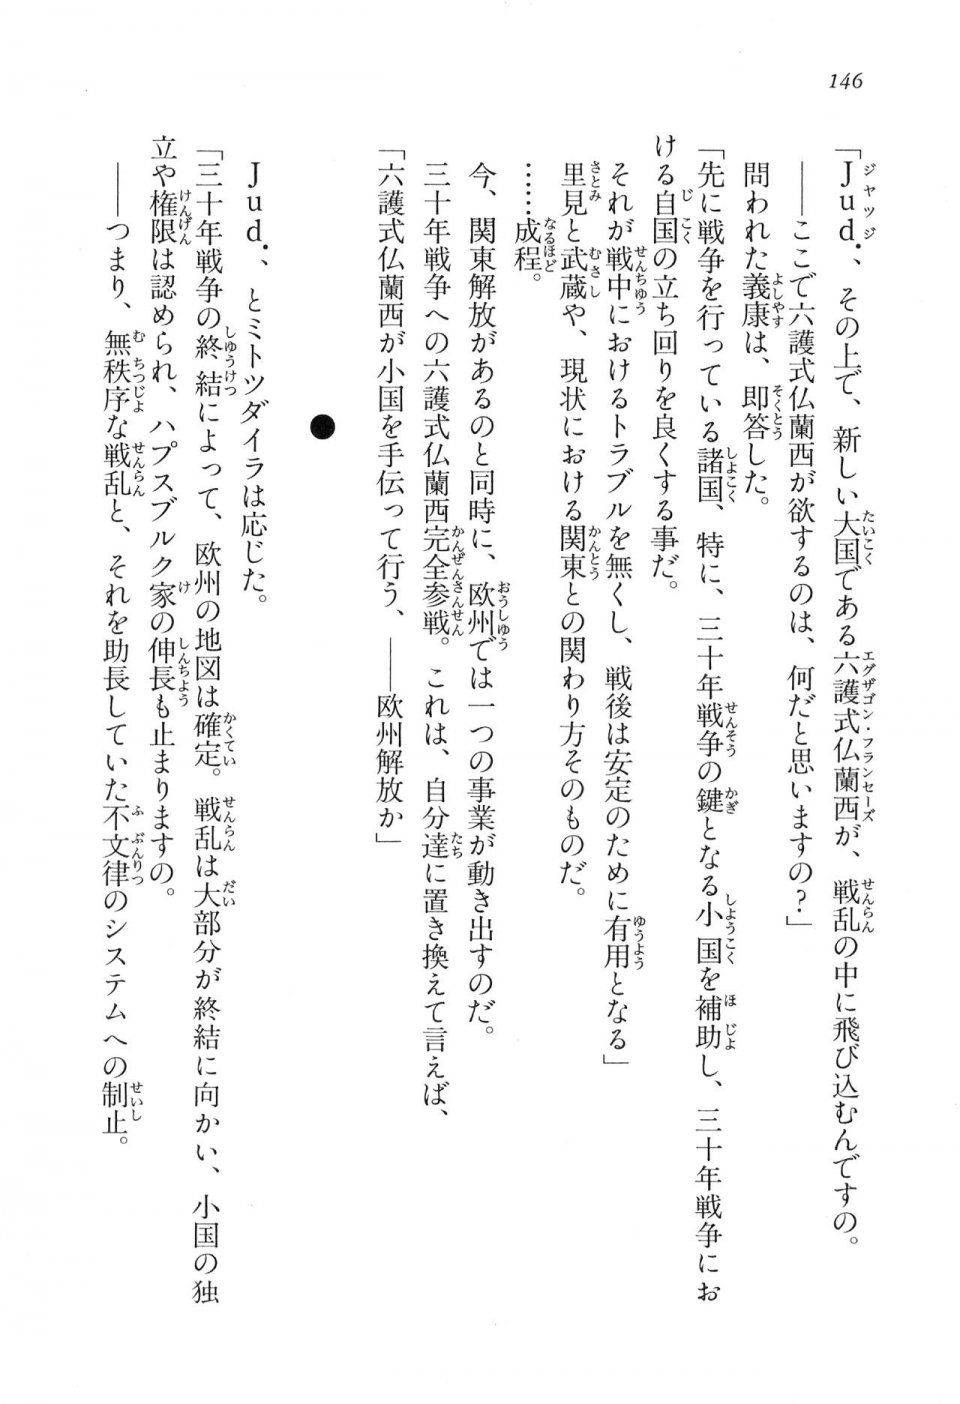 146
「Jud.、その上で、新しい大国である六護式仏蘭西が、戦乱の中に飛び込むんですの。
――ここで六護式仏蘭西が欲するのは、何だと思いますの？」
問われた義康は、即答した。
「先に戦争を行っている諸国、特に、三十年戦争の鍵となる小国を補助し、三十年戦争にお
ける自国の立ち回りを良くする事だ。
それが戦中におけるトラブルを無くし、戦後は安定のために有用となる」
里見と武蔵や、現状における関東との関わり方そのものだ。
……成程。
今、関東解放があるのと同時に、欧州では一つの事業が動き出すのだ。
三十年戦争への六護式仏蘭西完全参戦。これは、自分達に置き換えて言えば、
「六護式仏蘭西が小国を手伝って行う、――欧州解放か」
●
Jud.、とミトツダイラは応じた。
「三十年戦争の終結によって、欧州の地図は確定。戦乱は大部分が終結に向かい、小国の独
立や権限は認められ、ハプスブルク家の伸長も止まりますの。
――つまり、無秩序な戦乱と、それを助長していた不文律のシステムへの制止。